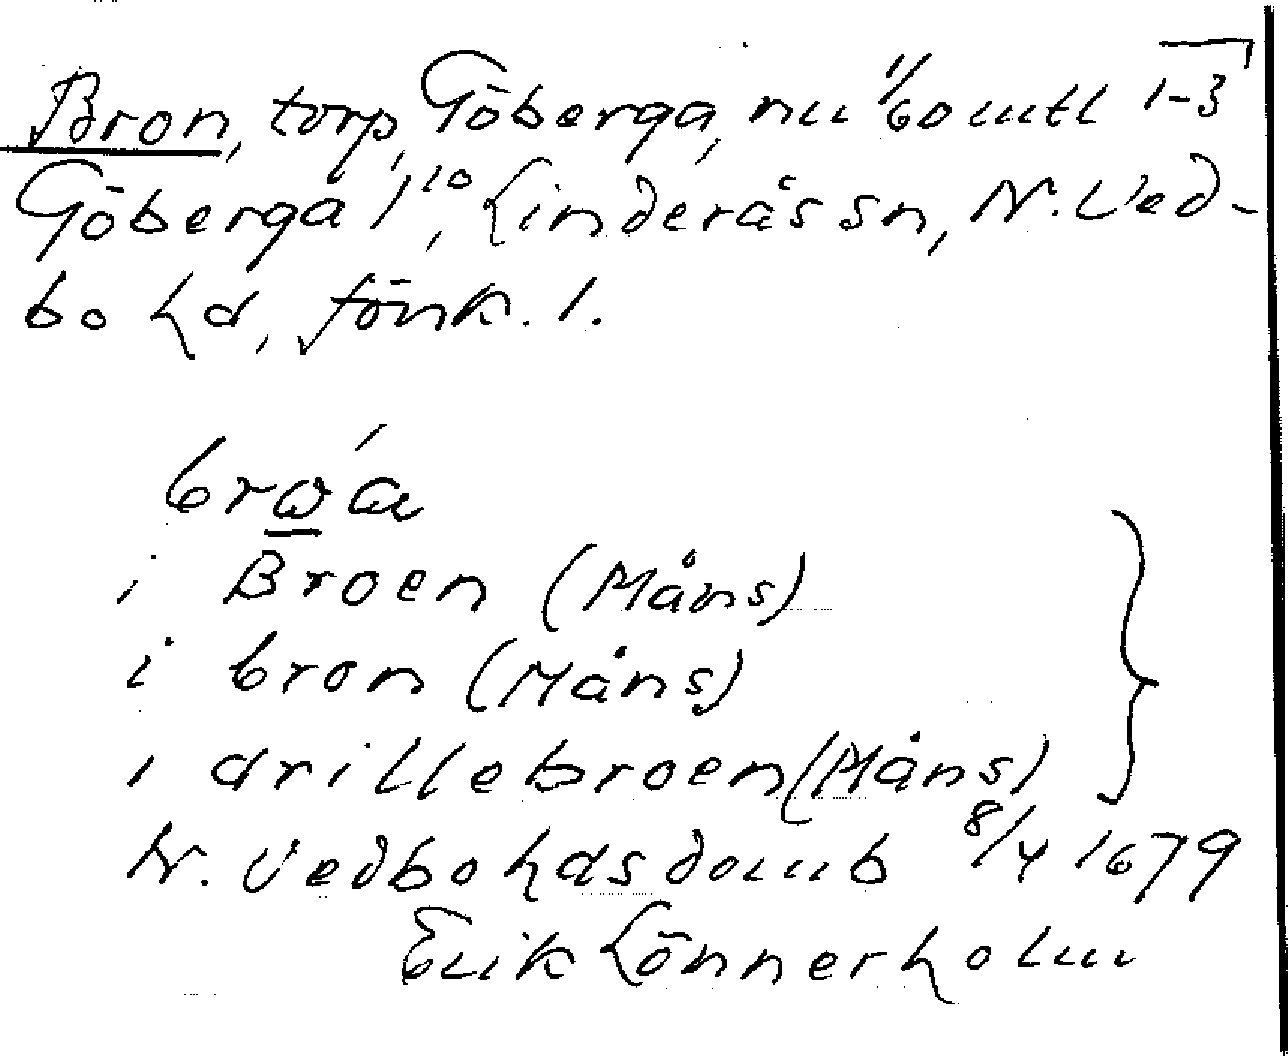 Bron, torp, Göberga, nu 11/60 mtl 1-3
Göberga 1¹⁰, Linderås sn, N. Ved-
bo hd, Jönk. l.
brωá
i Broen (Måns)
i bron (Måns)
i drillebroen (Måns)
N. Vedbo hds domb 8/4 1679
Erik Lönnerholm